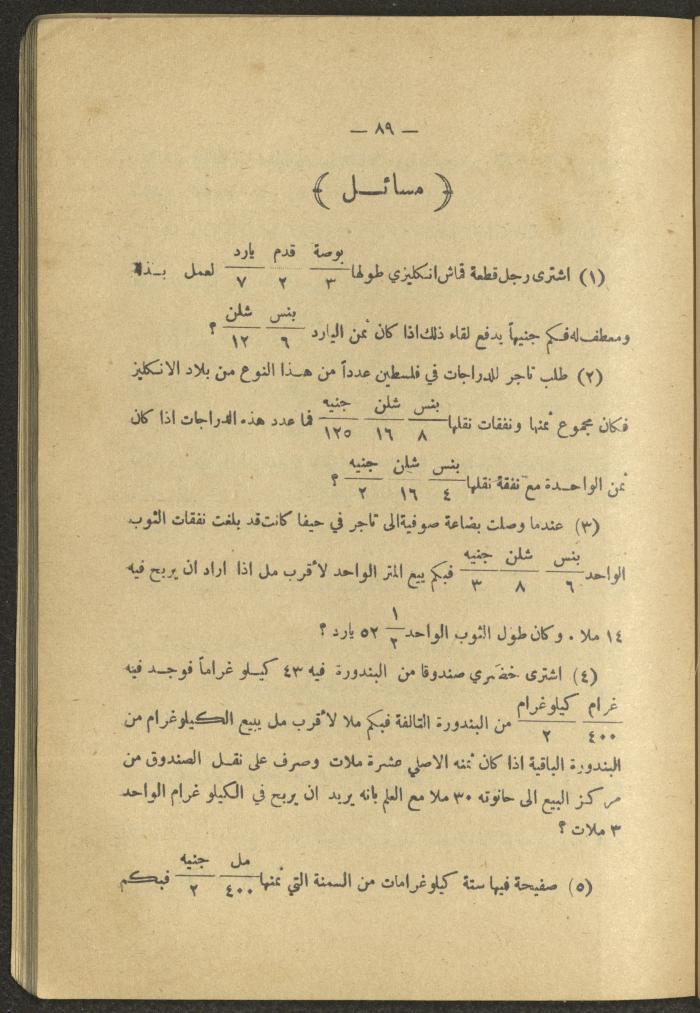 — ٨٩ —
﴿ مسائل ﴾
بوصة قدم يارد
(١) اشترى رجل قطعة قماش انكليزي طولها ٣ ٢ ٧ لعمل بذلة
بنس شلن
ومعطف له فكم جنيهاً يدفع لقاء ذلك اذا كان ثمن اليارد ٦ ١٢ ؟
(٢) طلب تاجر للدراجات في فلسطين عدداً من هذا النوع من بلاد الانكليز
بنس شلن جنيه
فكان مجموع ثمنها ونفقات نقلها ٨ ١٦ ١٢٥ فما عدد هذه الدراجات اذا كان
بنس شلن جنيه
ثمن الواحدة مع نفقة نقلها ٤ ١٦ ٢ ؟
(٣) عندما وصلت بضاعة صوفية الى تاجر في حيفا كانت قد بلغت نفقات الثوب
بنس شلن جنيه
الواحد ٦ ٨ ٣ فبكم يبيع المتر الواحد لأقرب مل اذا اراد ان يربح فيه
١٤ ملا . وكان طول الثوب الواحد ١/٢ ٥٢ يارد ؟
(٤) اشترى خضري صندوقا من البندورة فيه ٤٣ كيلو غراماً فوجد فيه
غرام كيلوغرام
٤٠٠ ٢ من البندورة التالفة فبكم ملا لأقرب مل يبيع الكيلوغرام من
البندورة الباقية اذا كان ثمنه الاصلي عشرة ملات وصرف على نقل الصندوق من
مركز البيع الى حانوته ٣٠ ملا مع العلم بانه يريد ان يربح في الكيلو غرام الواحد
٣ ملات ؟
مل جنيه
(٥) صفيحة فيها ستة كيلوغرامات من السمنة التي ثمنها ٤٠٠ ٢ فبكم